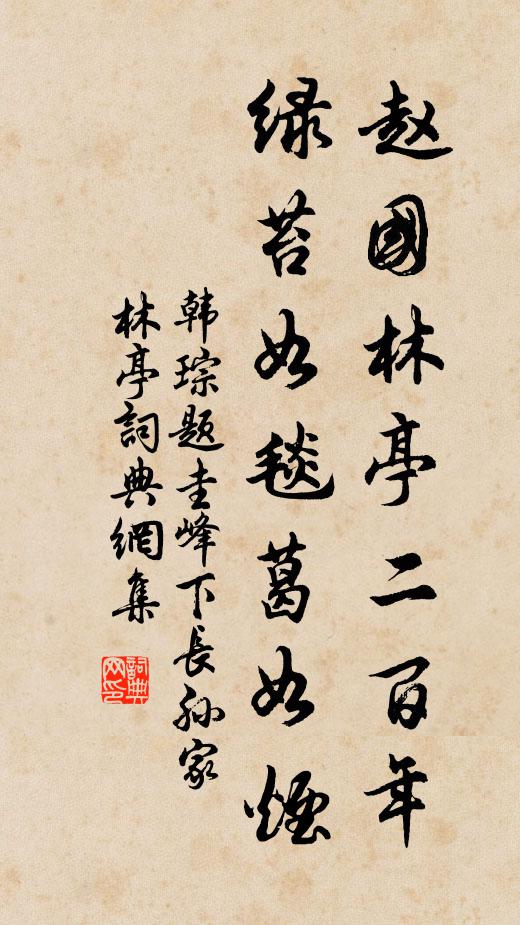 赵國林亭二百年
绿苔如毯葛如煙
韩琮题圭峰下長孙家
林亭詞典網集
詞典网印